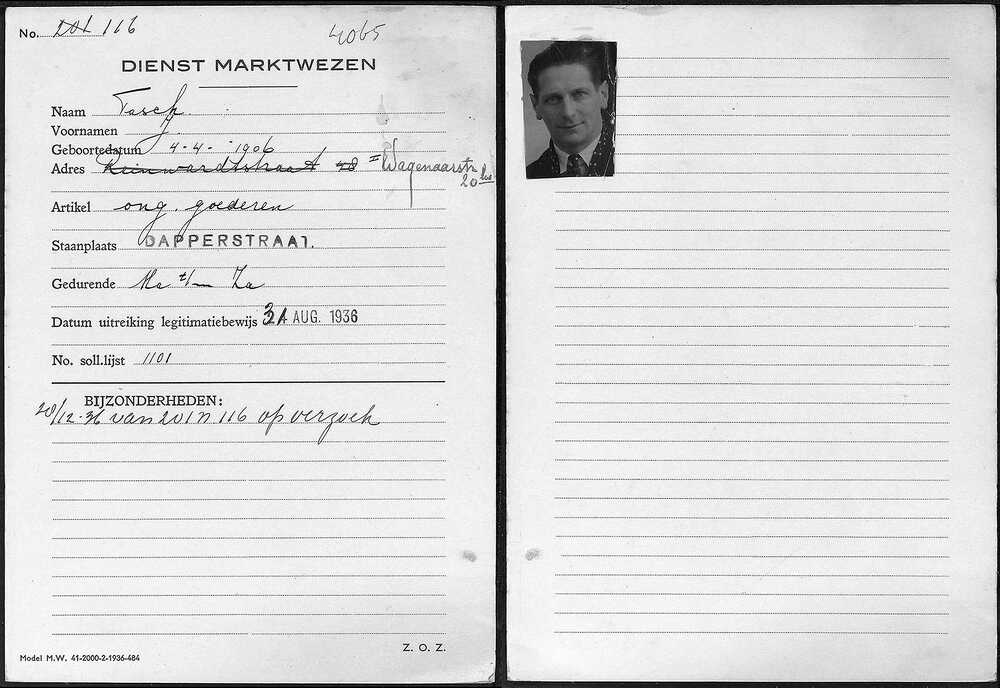 No. 201 116
4065
DIENST MARKTWEZEN
Naam Tasch
Voornamen J.
Geboortedatum 4-4-1906
Adres Reinwardtstraat 48 II Wagenaarstr
20 hs
Artikel ong. goederen
Staanplaats DAPPERSTRAAT.
Gedurende Ma t/m Za
Datum uitreiking legitimatiebewijs 31 AUG. 1936
No. soll.lijst 1101
BIJZONDERHEDEN:
28/12-36 van 201 n 116 op verzoek
Z. O. Z.
Model M.W. 41-2000-2-1936-484